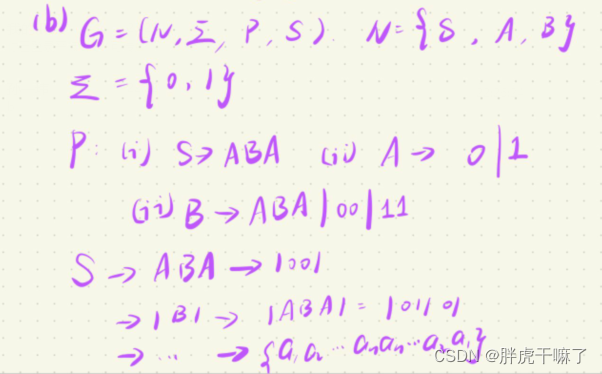 (b) G = (N, Σ, P, S) N = {S, A, B}
Σ = {0, 1}
P: (i) S → ABA (ii) A → 0|1
(iii) B → ABA|00|11
S → ABA → 1001
→ 1B1 → 1ABA1 = 101101
→ ... → {a₁a₂...aₙaₙ...a₂a₁}
CSDN @胖虎干嘛了